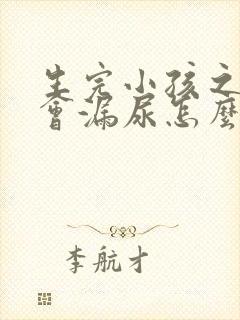 生完小孩之
會漏尿怎麼
李航才